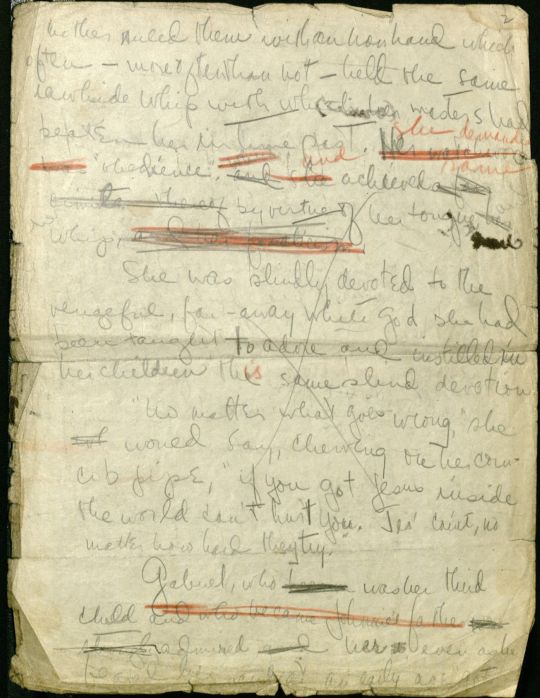 2
mother ruled them with an iron hand which
often — more often than not — held the same
rawhide whip with which her masters had
beaten her in time past. She demanded
"obedience", and she achieved same
by virtue of her tongue
whip,
She was blindly devoted to the
vengeful, far-away white God she had
been taught to adore and instilled in
her children this same blind devotion.
"No matter what goes wrong," she
would say, chewing on her corn-
cob pipe, "if you got Jesus inside
the world can't hurt you. Jes' cain't, no
matter how hard they try."
Gabriel, who was her third
child and who became father
admired her even as he
feared her an early age